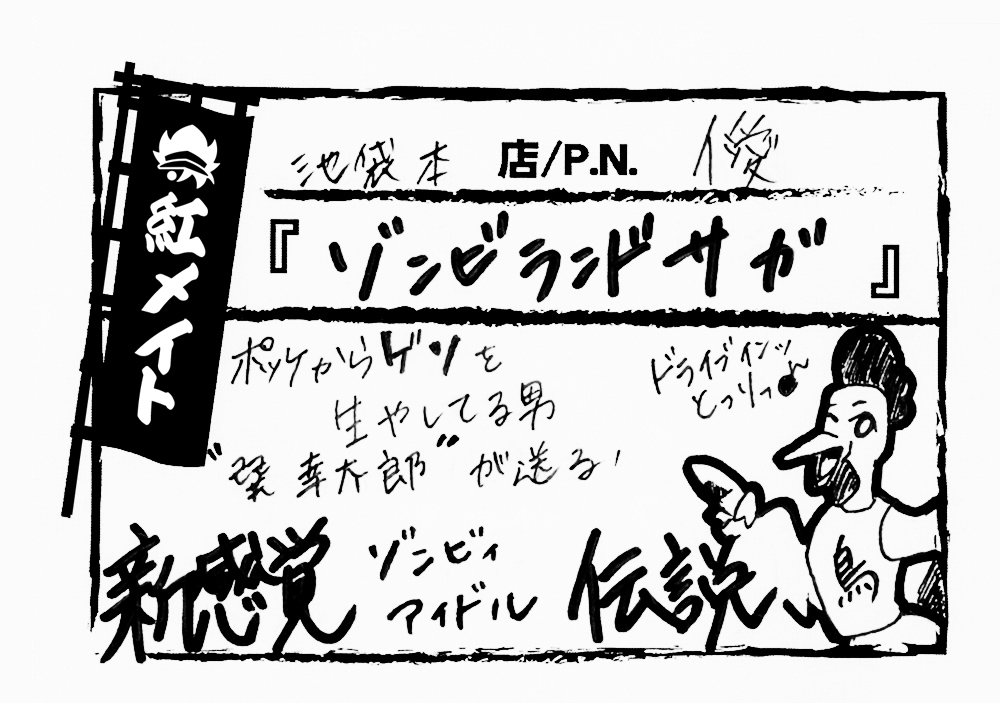 紅メイト
池袋本 店/P.N. 俊
『ゾンビランドサガ』
ポッケからゲソを
生やしてる男
"巽 幸太郎"が送る!
ドライブインッ
とっりっ♪
新感覚 ゾンビィ
アイドル 伝説、、
鳥